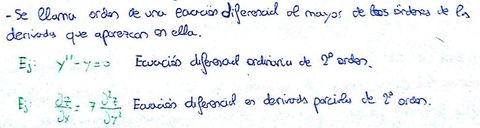 - Se llama orden de una ecuación diferencial al mayor de los órdenes de las
derivadas que aparezcan en ella.
Ej: y'' - y = 0 Ecuación diferencial ordinaria de 2º orden.
Ej: ∂z/∂x = 7 ∂²z/∂y² Ecuación diferencial en derivadas parciales de 2º orden.